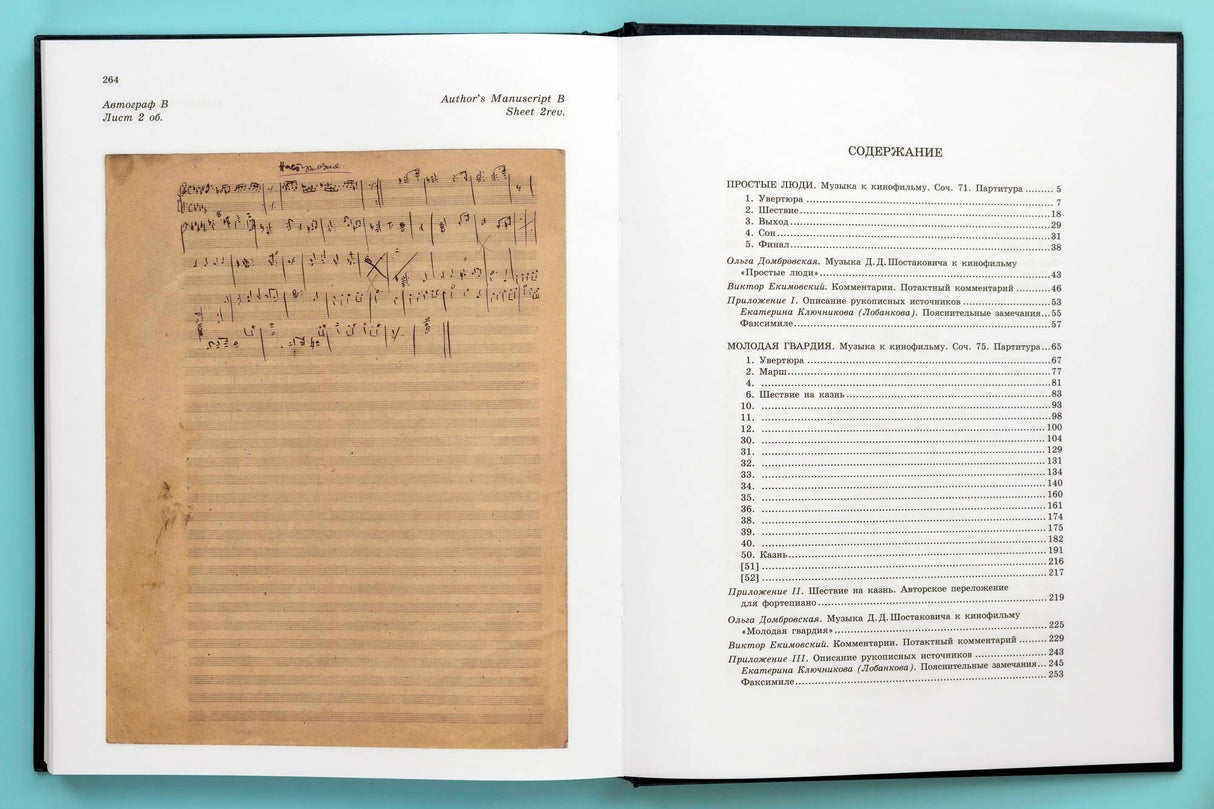 264
Автограф В
Лист 2 об.
Author's Manuscript B
Sheet 2rev.
СОДЕРЖАНИЕ
ПРОСТЫЕ ЛЮДИ. Музыка к кинофильму. Соч. 71. Партитура ......... 5
1. Увертюра ........ 7
2. Шествие ........ 18
3. Выход ........ 29
4. Сон ........ 31
5. Финал ........ 38
Ольга Домбровская. Музыка Д. Д. Шостаковича к кинофильму
«Простые люди» ........ 43
Виктор Екимовский. Комментарии. Потактный комментарий .......... 46
Приложение I. Описание рукописных источников ........ 53
Екатерина Ключникова (Лобанкова). Пояснительные замечания... 55
Факсимиле ........ 57
МОЛОДАЯ ГВАРДИЯ. Музыка к кинофильму. Соч. 75. Партитура... 65
1. Увертюра ........ 67
2. Марш ........ 77
4. ........ 81
6. Шествие на казнь ........ 83
10. ........ 93
11. ........ 98
12. ........ 100
30. ........ 104
31. ........ 129
32. ........ 131
33. ........ 134
34. ........ 140
35. ........ 160
36. ........ 161
38. ........ 174
39. ........ 175
40. ........ 182
50. Казнь ........ 191
[51] ........ 216
[52] ........ 217
Приложение II. Шествие на казнь. Авторское переложение
для фортепиано ........ 219
Ольга Домбровская. Музыка Д. Д. Шостаковича к кинофильму
«Молодая гвардия» ........ 225
Виктор Екимовский. Комментарии. Потактный комментарий ........ 229
Приложение III. Описание рукописных источников ........ 243
Екатерина Ключникова (Лобанкова). Пояснительные замечания... 245
Факсимиле ........ 253